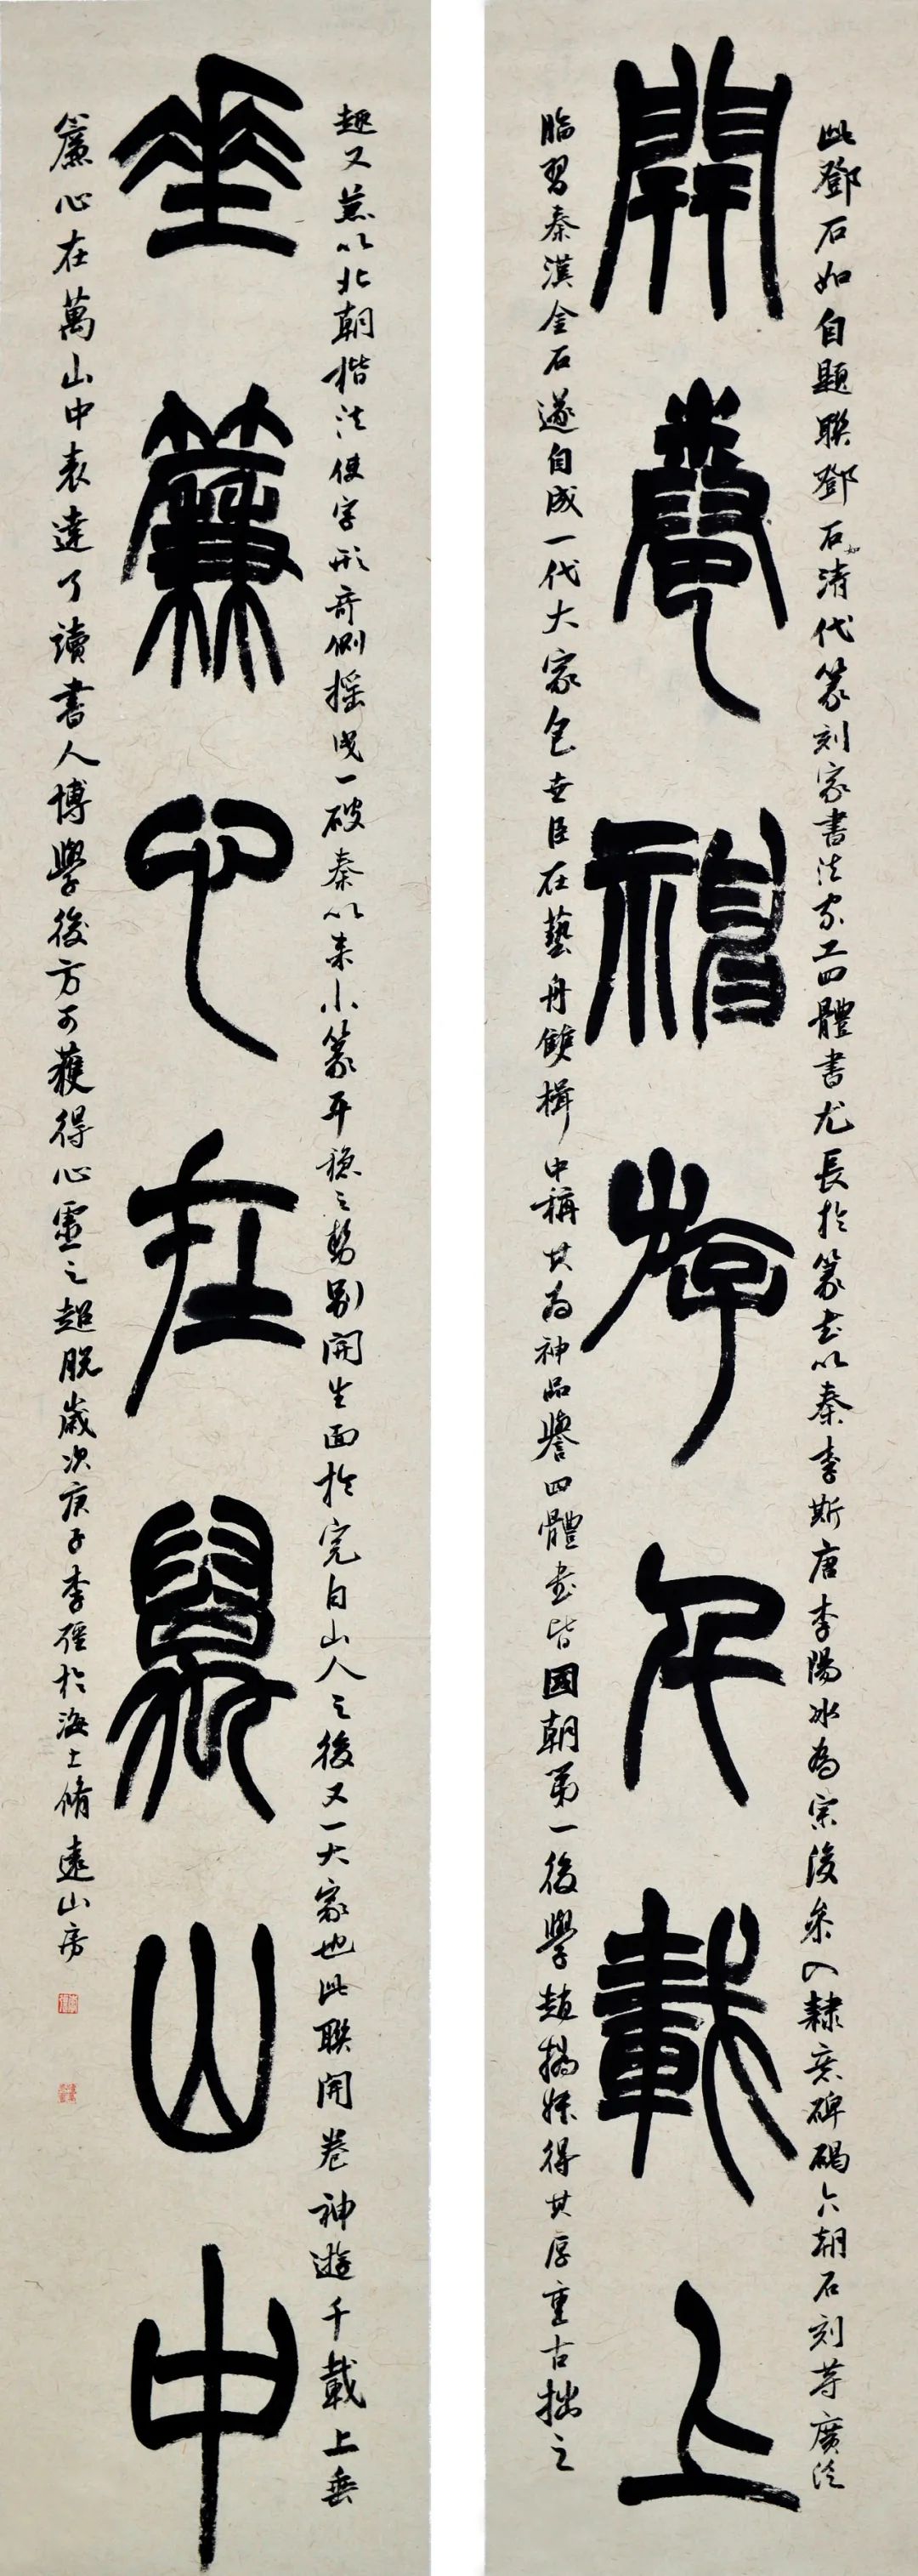 開卷神游千載上
此鄧石如自題聯鄧石清代篆刻家書法家工四體書尤長於篆書以秦李斯唐李陽冰為宗後參入隸意碑碣六朝石刻等廣泛
臨習秦漢金石遂自成一代大家包世臣在藝舟雙楫中稱其為神品譽四體書皆國朝第一後學趙撝叔得其厚重古拙之
垂簾心在萬山中
趣又蒸以北朝楷法使字形奇側搖曳一破秦以來小篆平穩之勢别開生面於完白山人之後又一大家也此聯開卷神遊千載上垂
簾心在萬山中表達了讀書人博學後方可獲得心靈之超脫歲次庚子李強於海上脩遠山房